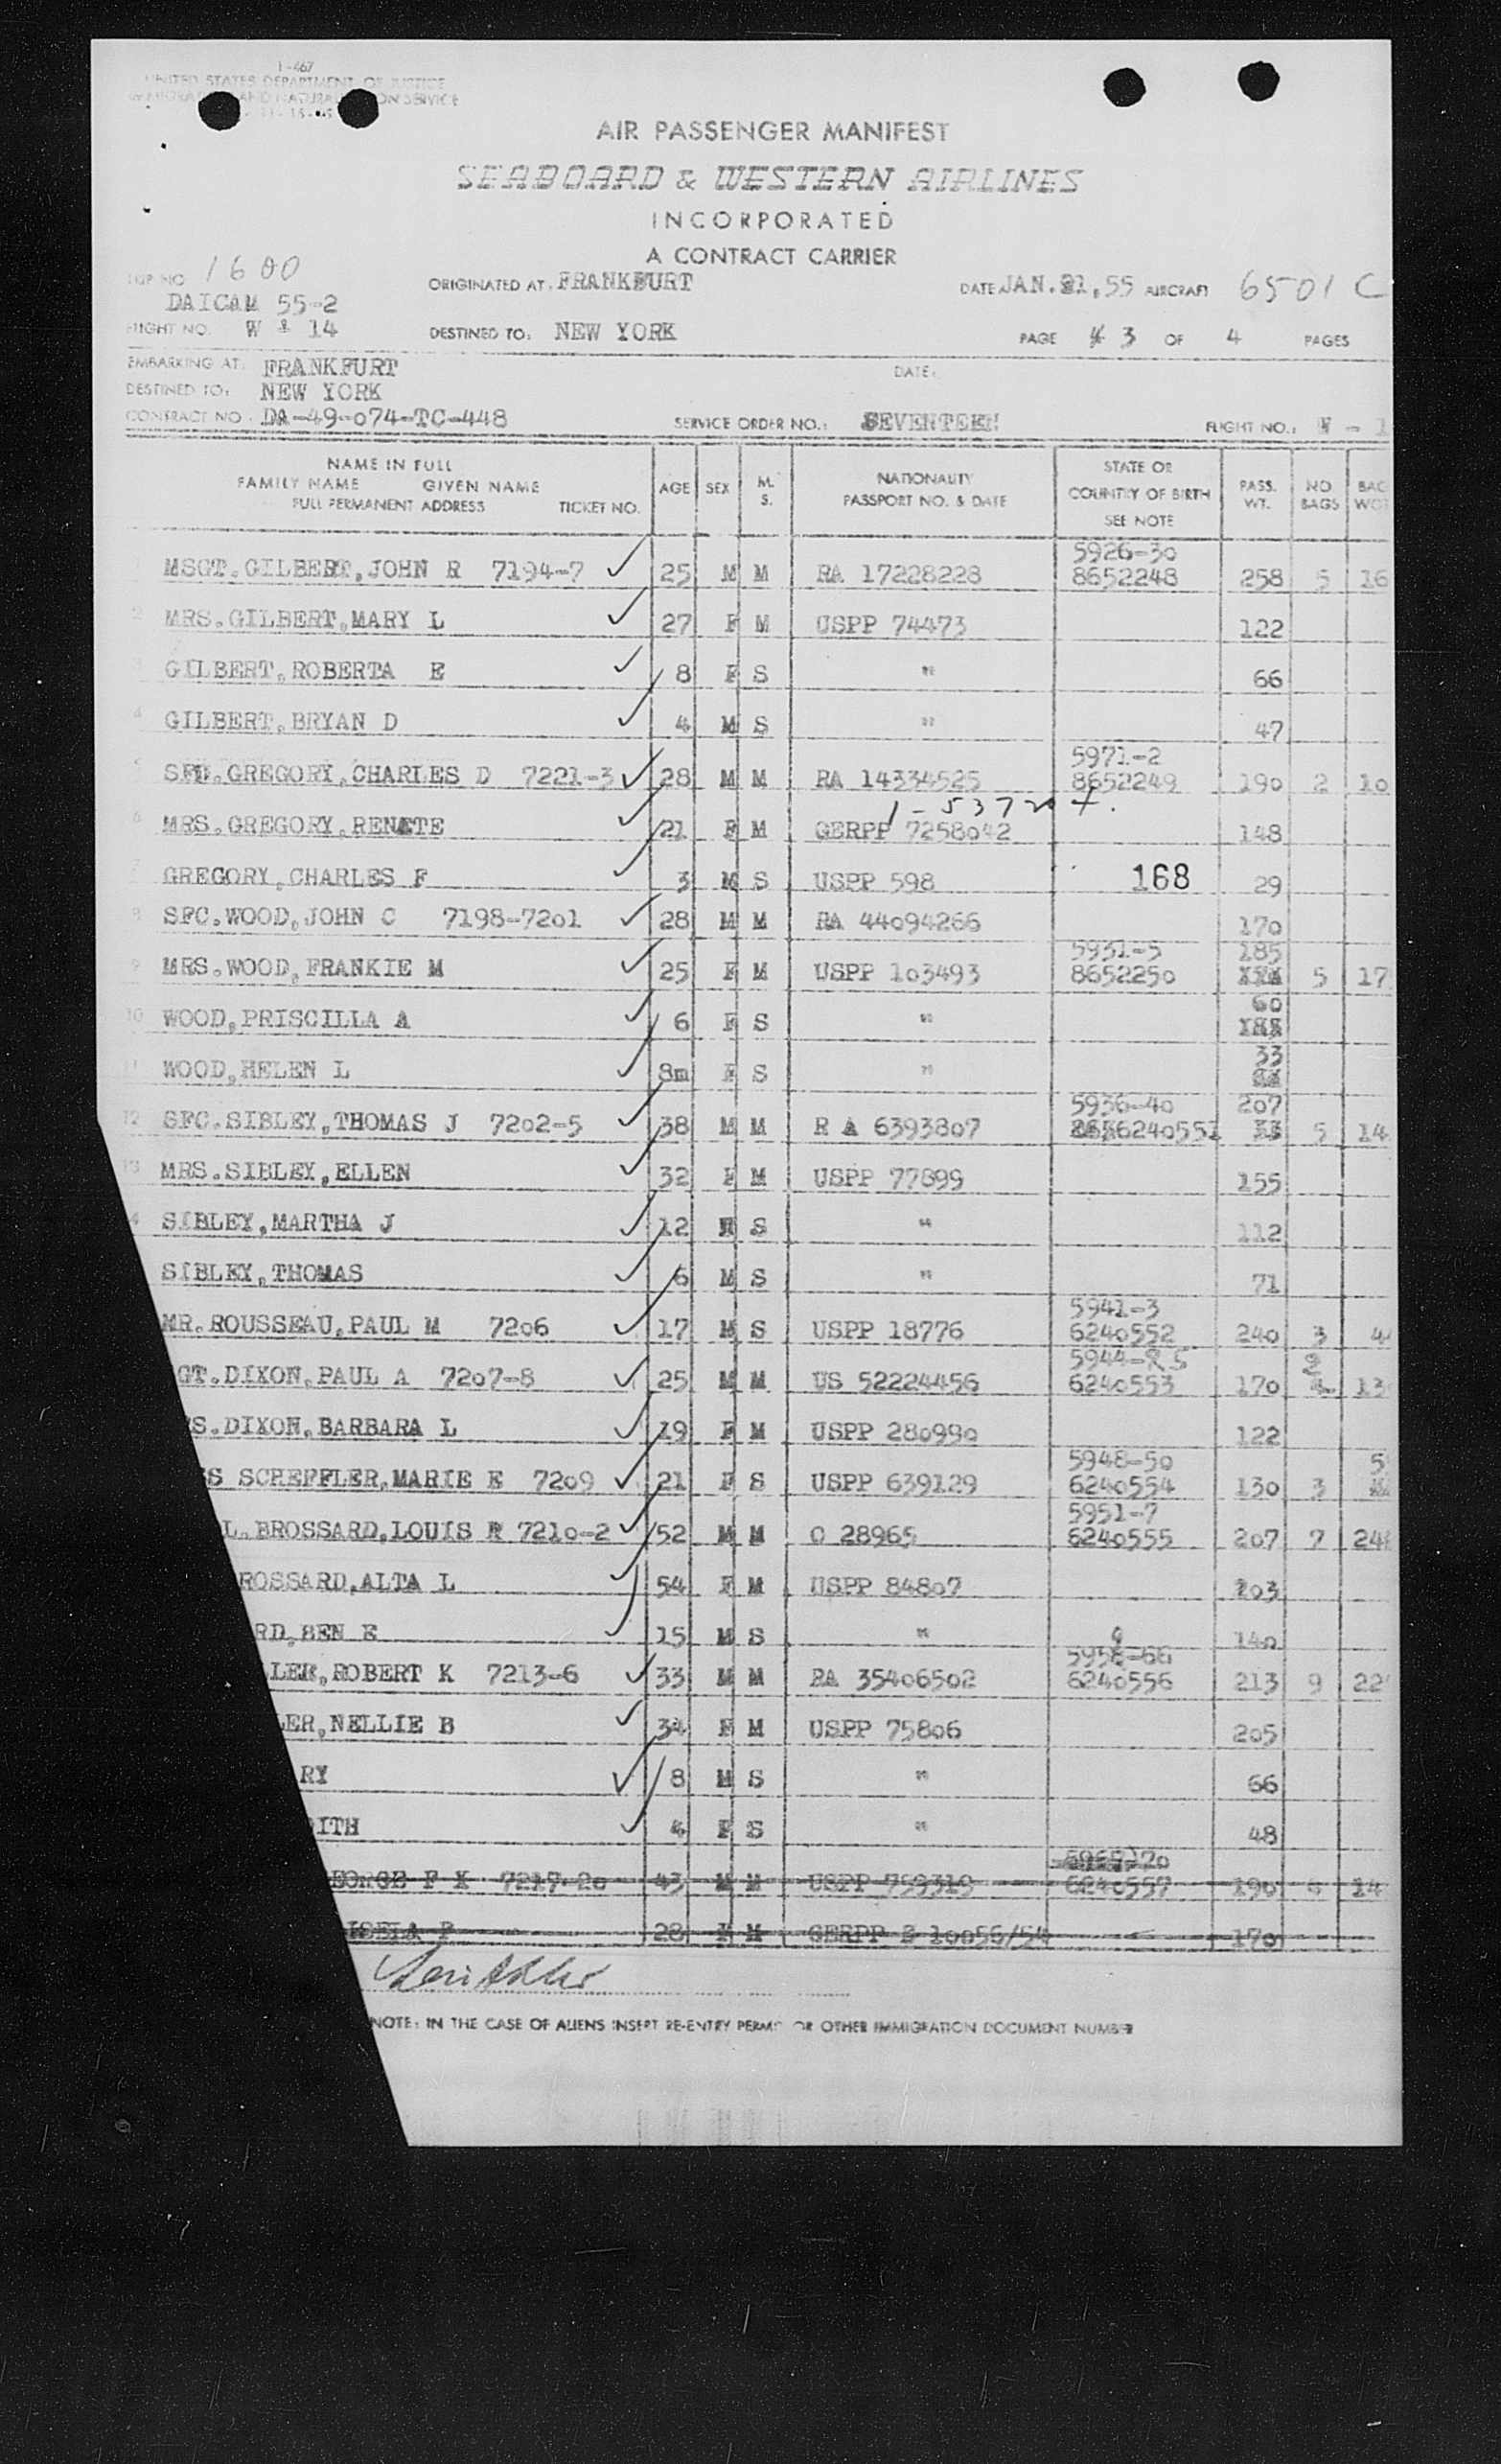 I-467
UNITED STATES DEPARTMENT OF JUSTICE
AIR PASSENGER MANIFEST
SEABOARD & WESTERN AIRLINES
INCORPORATED
A CONTRACT CARRIER
1600
DAICAM 55-2
ORIGINATED AT: FRANKFURT DATE: JAN. 21, 55 AIRCRAFT 6501 C
FLIGHT NO. W & 14 DESTINED TO: NEW YORK PAGE 3 OF 4 PAGES
EMBARKING AT: FRANKFURT DATE:
DESTINED TO: NEW YORK
CONTRACT NO. DA-49-074-TC-448 SERVICE ORDER NO.: SEVENTEEN FLIGHT NO.: W - 1
NAME IN FULL
FAMILY NAME GIVEN NAME
FULL PERMANENT ADDRESS TICKET NO. AGE SEX M. S. NATIONALITY PASSPORT NO. & DATE STATE OR COUNTRY OF BIRTH SEE NOTE PASS. WT. NO BAGS BAG WGT
5926-30
1 MSGT. GILBERT, JOHN R 7194-7 25 M M RA 17228228 8652248 258 5 16
2 MRS. GILBERT, MARY L 27 F M USPP 74473 122
3 GILBERT, ROBERTA E 8 F S " 66
4 GILBERT, BRYAN D 4 M S " 47
5971-2
5 SFC. GREGORY, CHARLES D 7221-3 28 M M RA 14334525 8652249 190 2 10
1-53720
6 MRS. GREGORY, RENATE 21 F M GERPP 7258042 148
7 GREGORY, CHARLES F 3 M S USPP 598 168 29
8 SFC. WOOD, JOHN C 7198-7201 28 M M RA 44094266 170
5931-5 185
9 MRS. WOOD, FRANKIE M 25 F M USPP 103493 8652250 5 17
60
10 WOOD, PRISCILLA A 6 F S "
33
11 WOOD, HELEN L 8m F S "
5936-40 207
12 SFC. SIBLEY, THOMAS J 7202-5 38 M M R A 6393807 6240551 5 14
13 MRS. SIBLEY, ELLEN 32 F M USPP 77899 155
4 SIBLEY, MARTHA J 12 F S " 112
SIBLEY, THOMAS 6 M S " 71
5941-3
MR. ROUSSEAU, PAUL M 7206 17 M S USPP 18776 6240552 240 3 4
5944-5 2
GT. DIXON, PAUL A 7207-8 25 M M US 52224456 6240553 170 13
S. DIXON, BARBARA L 19 F M USPP 280990 122
5948-50 5
SS SCHEFFLER, MARIE E 7209 21 F S USPP 639129 6240554 130 3
5951-7
L. BROSSARD, LOUIS R 7210-2 52 M M O 28965 6240555 207 7 24
ROSSARD, ALTA L 54 F M USPP 84807 203
RD, BEN E 15 M S " 140
5958-66
LLER, ROBERT K 7213-6 33 M M RA 35406502 6240556 213 9 22
LER, NELLIE B 34 F M USPP 75806 205
RY 8 M S " 66
DITH 4 F S " 48
EORGE F K 7217-20 43 M M USPP 759319 6240557 190 14
ISELA P 28 F M GERPP B 10056/54 170
NOTE: IN THE CASE OF ALIENS INSERT RE-ENTRY PERMIT OR OTHER IMMIGRATION DOCUMENT NUMBER